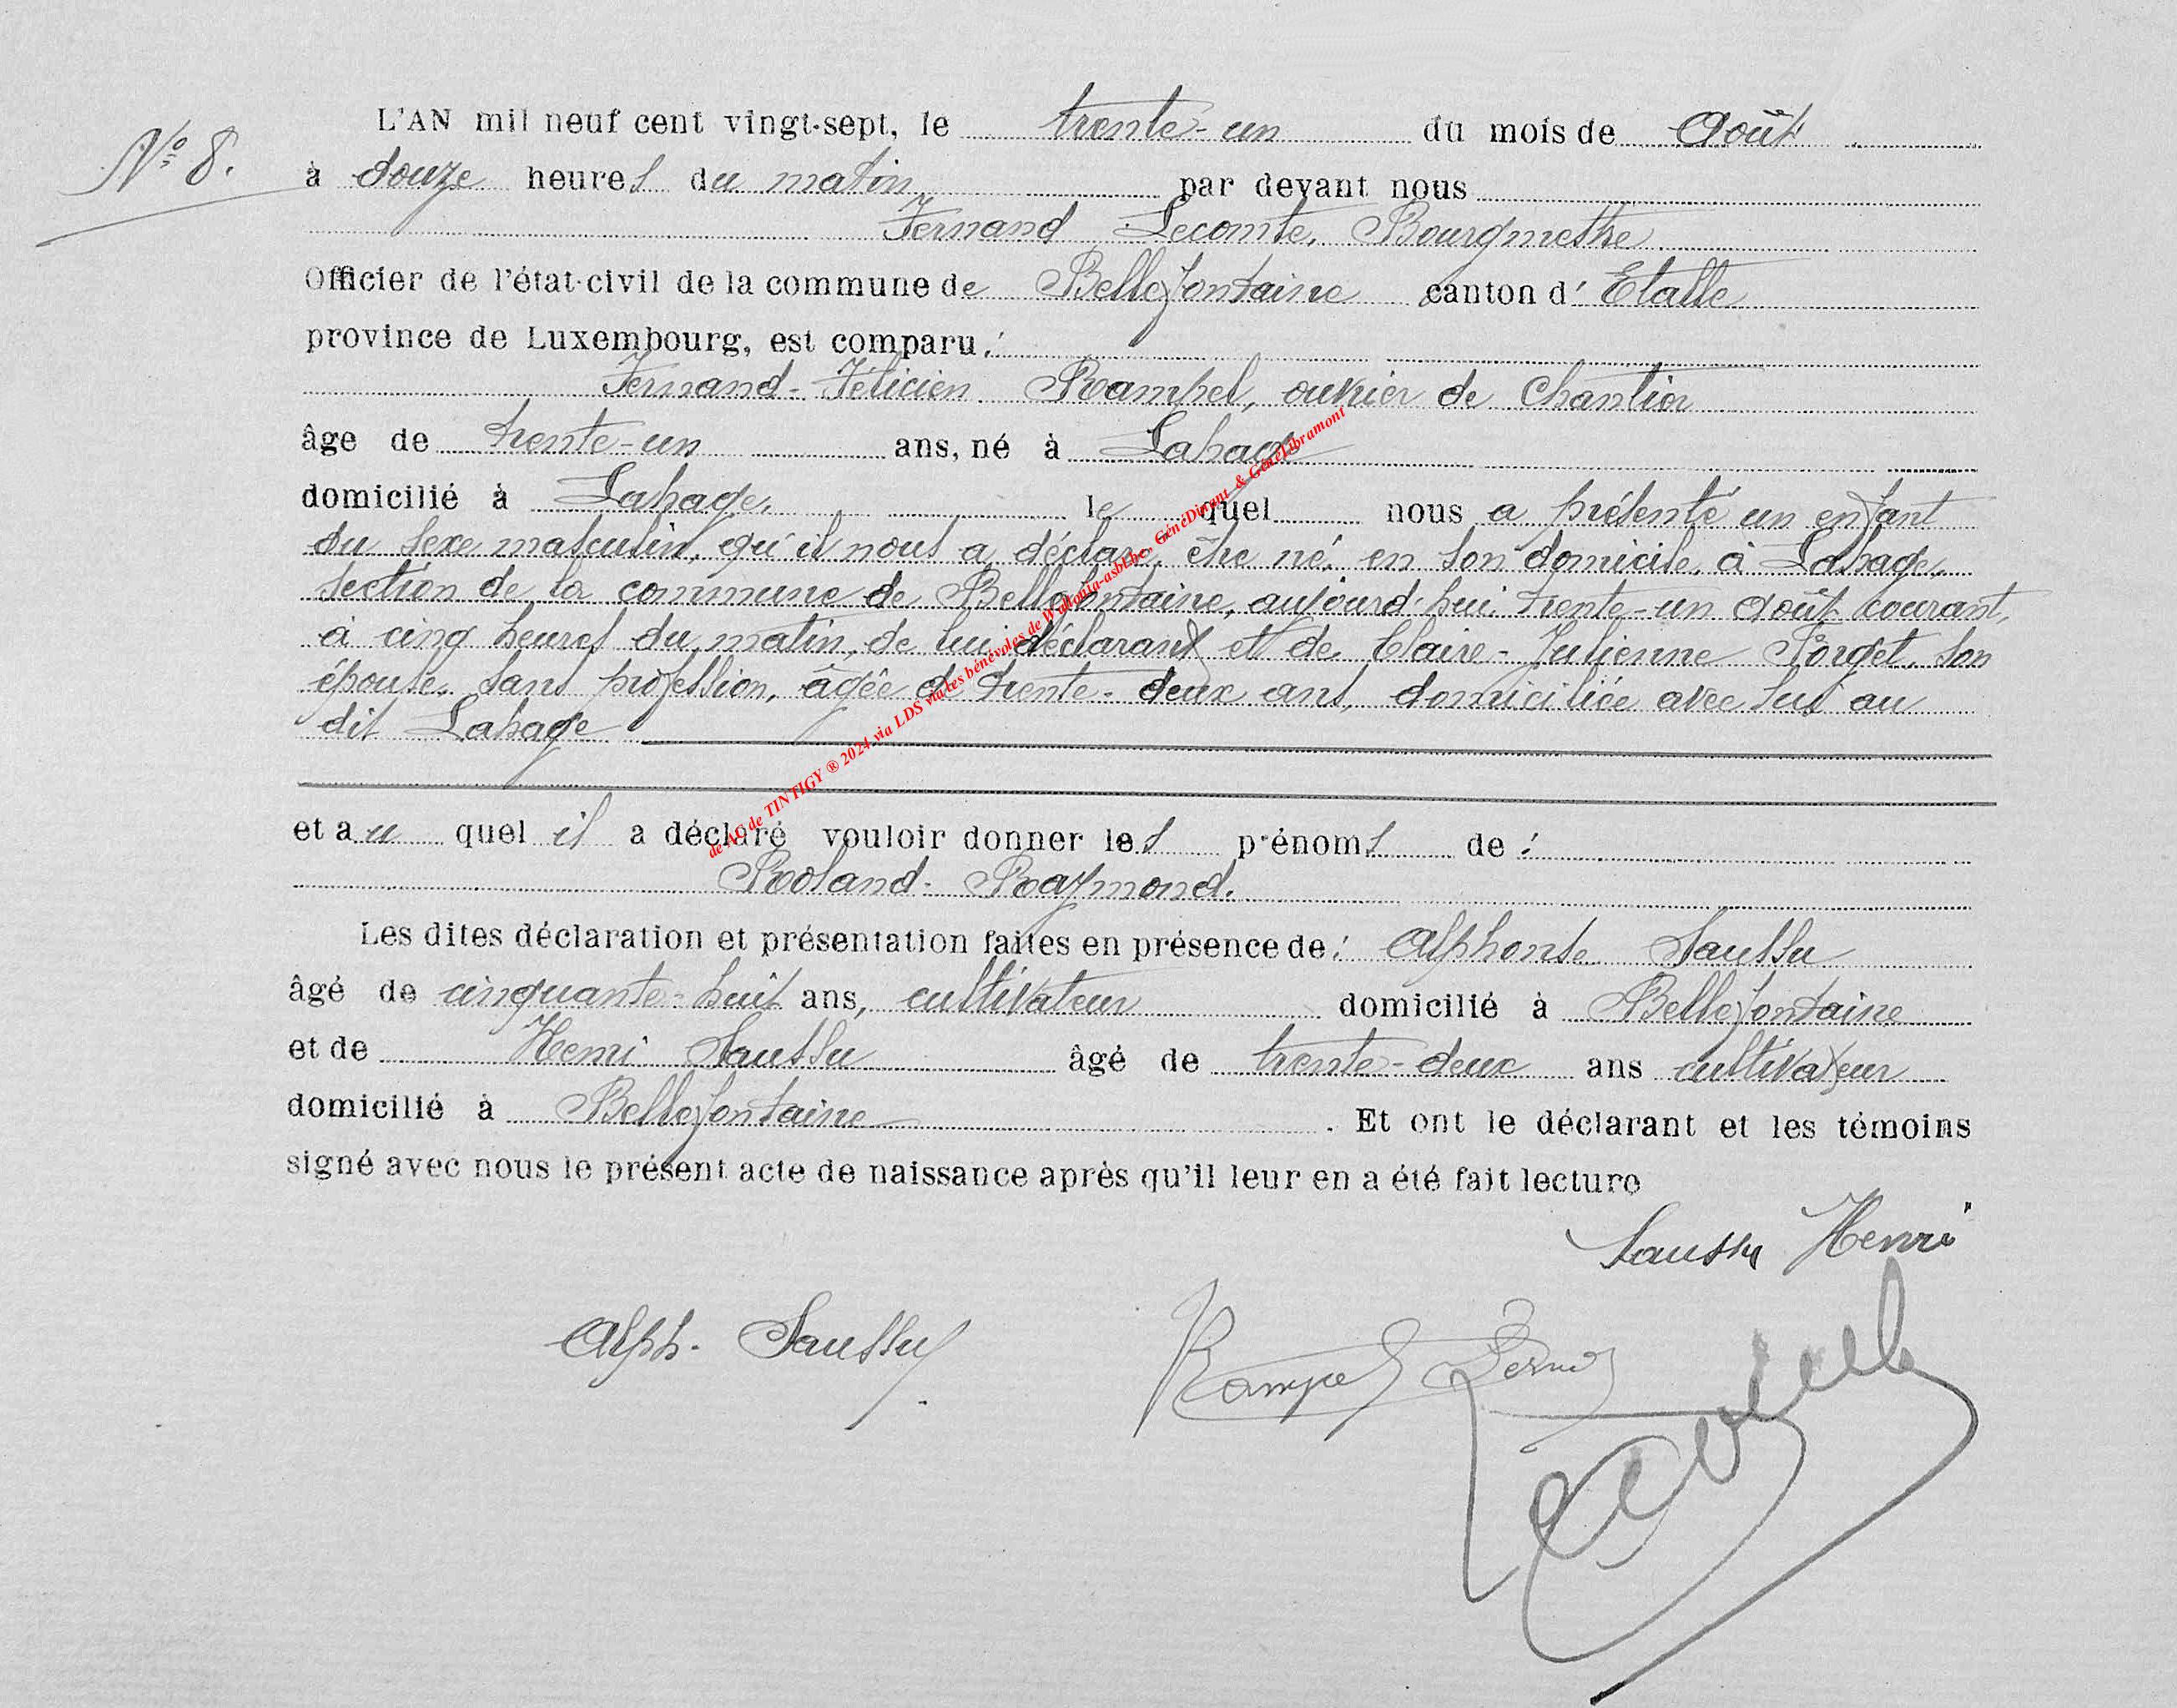 L'AN mil neuf cent vingt-sept, le trente-un du mois de Août
N° 8.
à douze heures du matin par devant nous
Fernand Lecomte, Bourgmestre
Officier de l'état-civil de la commune de Bellefontaine canton d' Etalle
province de Luxembourg, est comparu :
Fernand-Félicien Rampel, ouvrier de chantier
âge de trente-un ans, né à Lahage
domicilié à Lahage, lequel nous a présenté un enfant
du sexe masculin, qu'il nous a déclaré être né en son domicile, à Lahage,
section de la commune de Bellefontaine, aujourd'hui trente-un Août courant,
à cinq heures du matin, de lui déclarant et de Claire-Julienne Forget, son
épouse, sans profession, âgée de trente-deux ans, domiciliée avec lui au
dit Lahage
et au quel il a déclaré vouloir donner les prénoms de :
Roland-Raymond.
Les dites déclaration et présentation faites en présence de : Alphonse Saussu
âgé de cinquante-huit ans, cultivateur domicilié à Bellefontaine
et de Henri Saussu âgé de trente-deux ans cultivateur
domicilié à Bellefontaine . Et ont le déclarant et les témoins
signé avec nous le présent acte de naissance après qu'il leur en a été fait lecture
Saussu Henri
Alph. Saussu
Rampel Fernd
de AC de TINTIGY ® 2024 via LDS via les bénévoles de Wallonia-asbl.be, GénéDinant & GénéLibramont